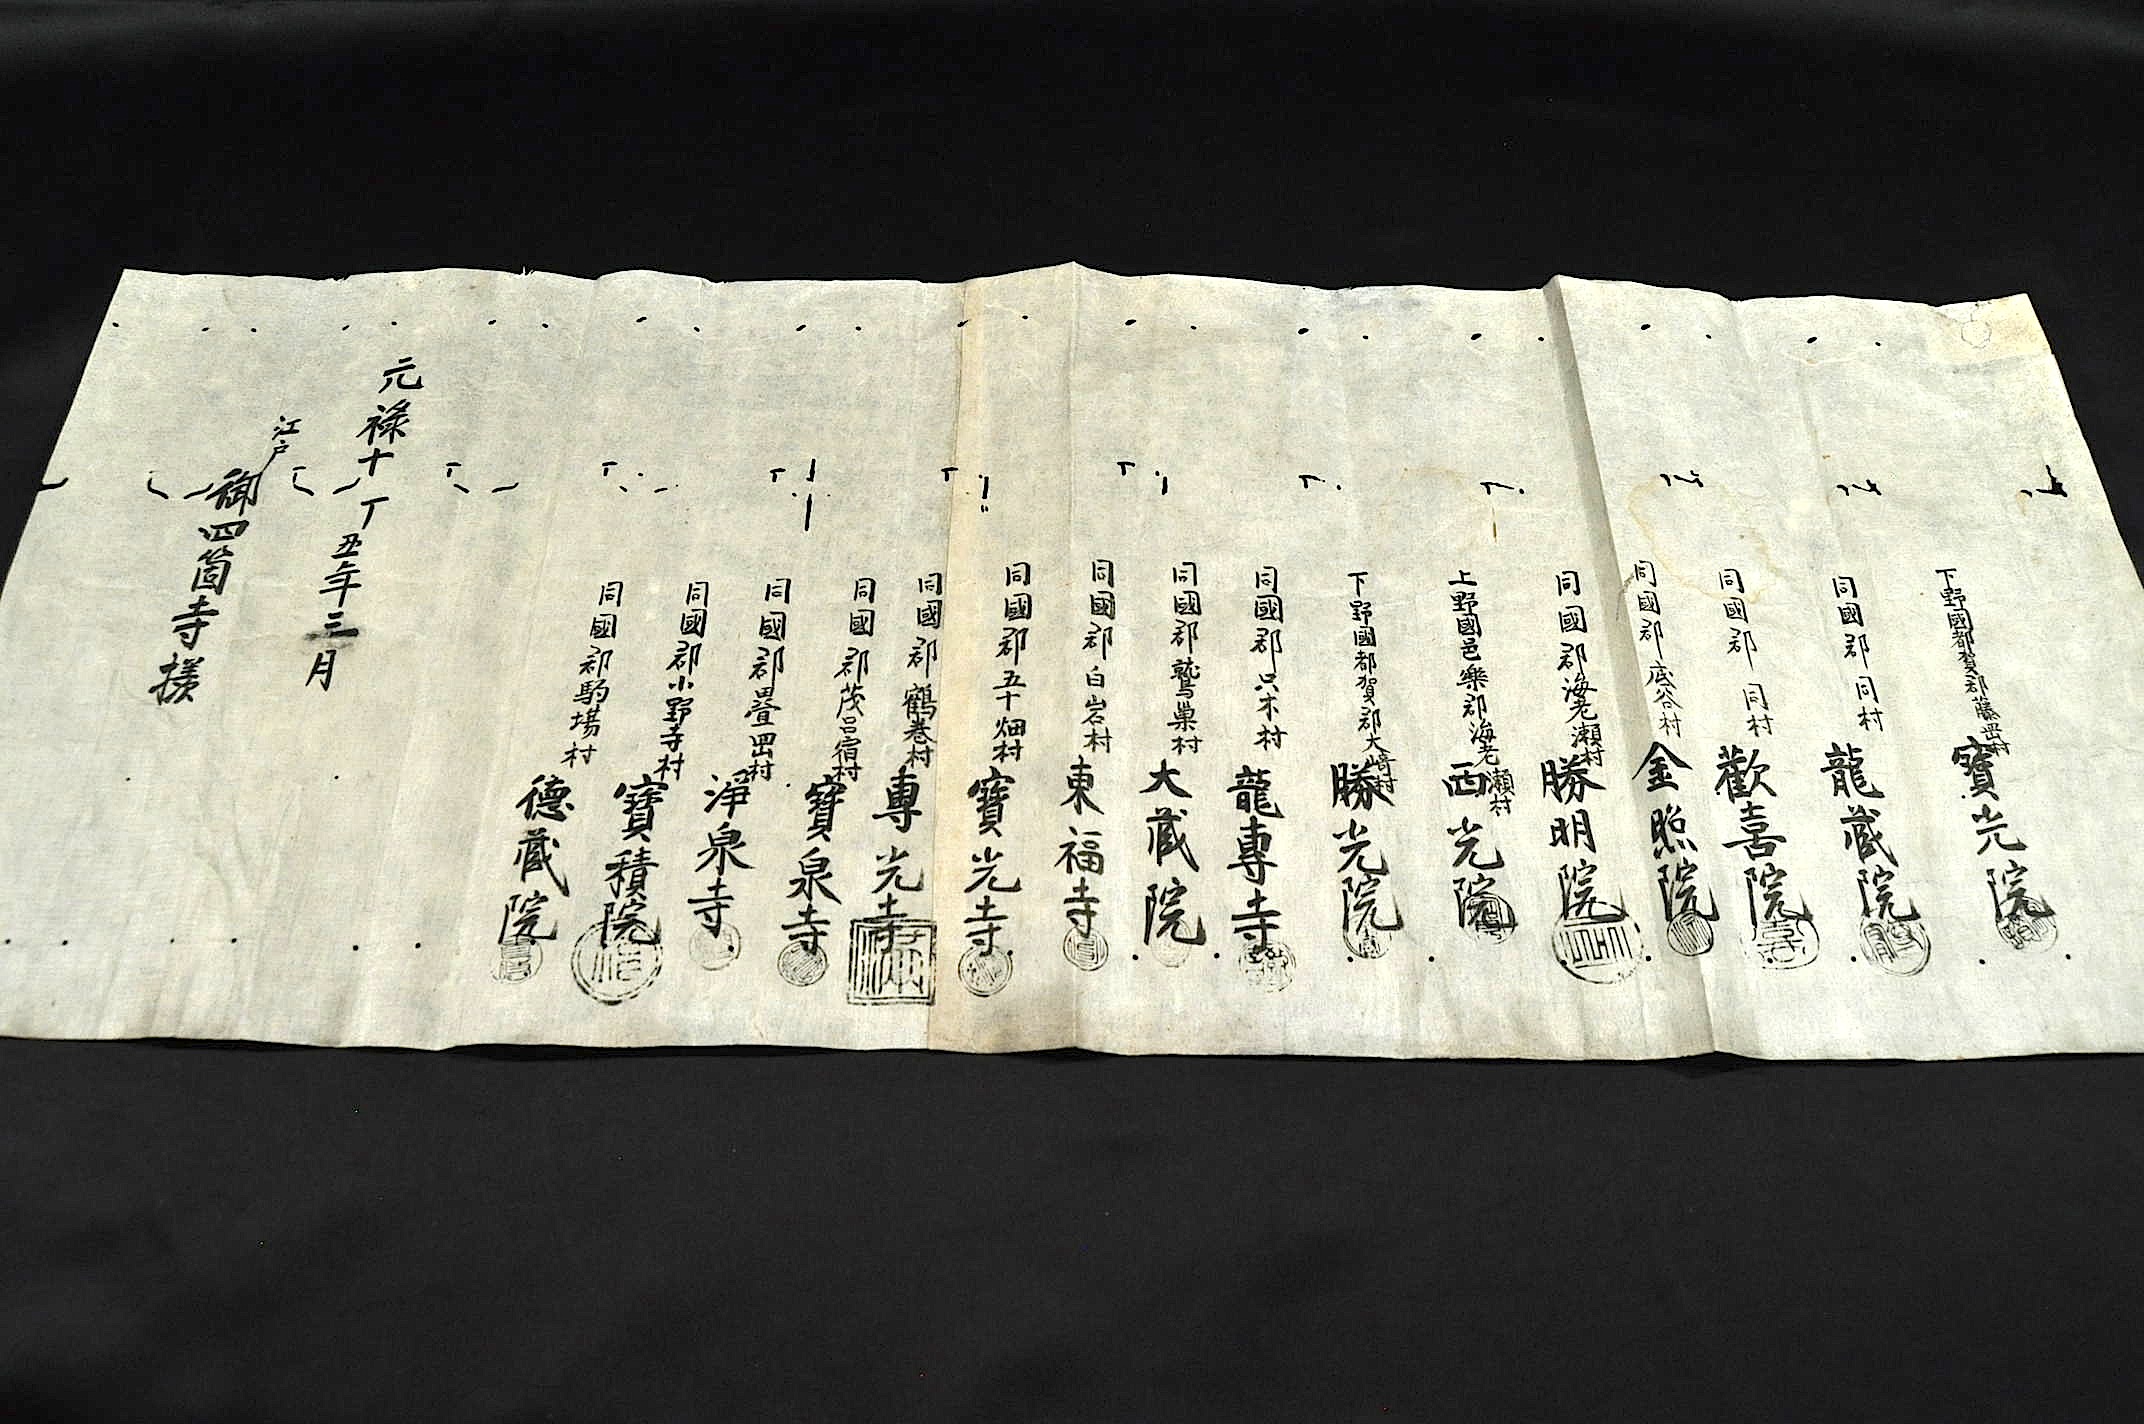 下野國都賀郡藤岡村 寶光院
同國郡同村 龍蔵院
同國郡同村 歡喜院
同國郡底谷村 金照院
同國郡海老瀬村 勝明院
上野國邑樂郡海老瀬村 西光院
下野國都賀郡大﨑村 勝光院
同國郡只木村 龍專寺
同國郡鷲巣村 大蔵院
同國郡白岩村 東福寺
同國郡五十畑村 寶光寺
同國郡鶴巻村 專光寺
同國郡茂呂宿村 寶泉寺
同國郡曡岡村 淨泉寺
同國郡小野寺村 寶積院
同國郡駒場村 德蔵院
元禄十丁丑年三月
江戸
御四箇寺様